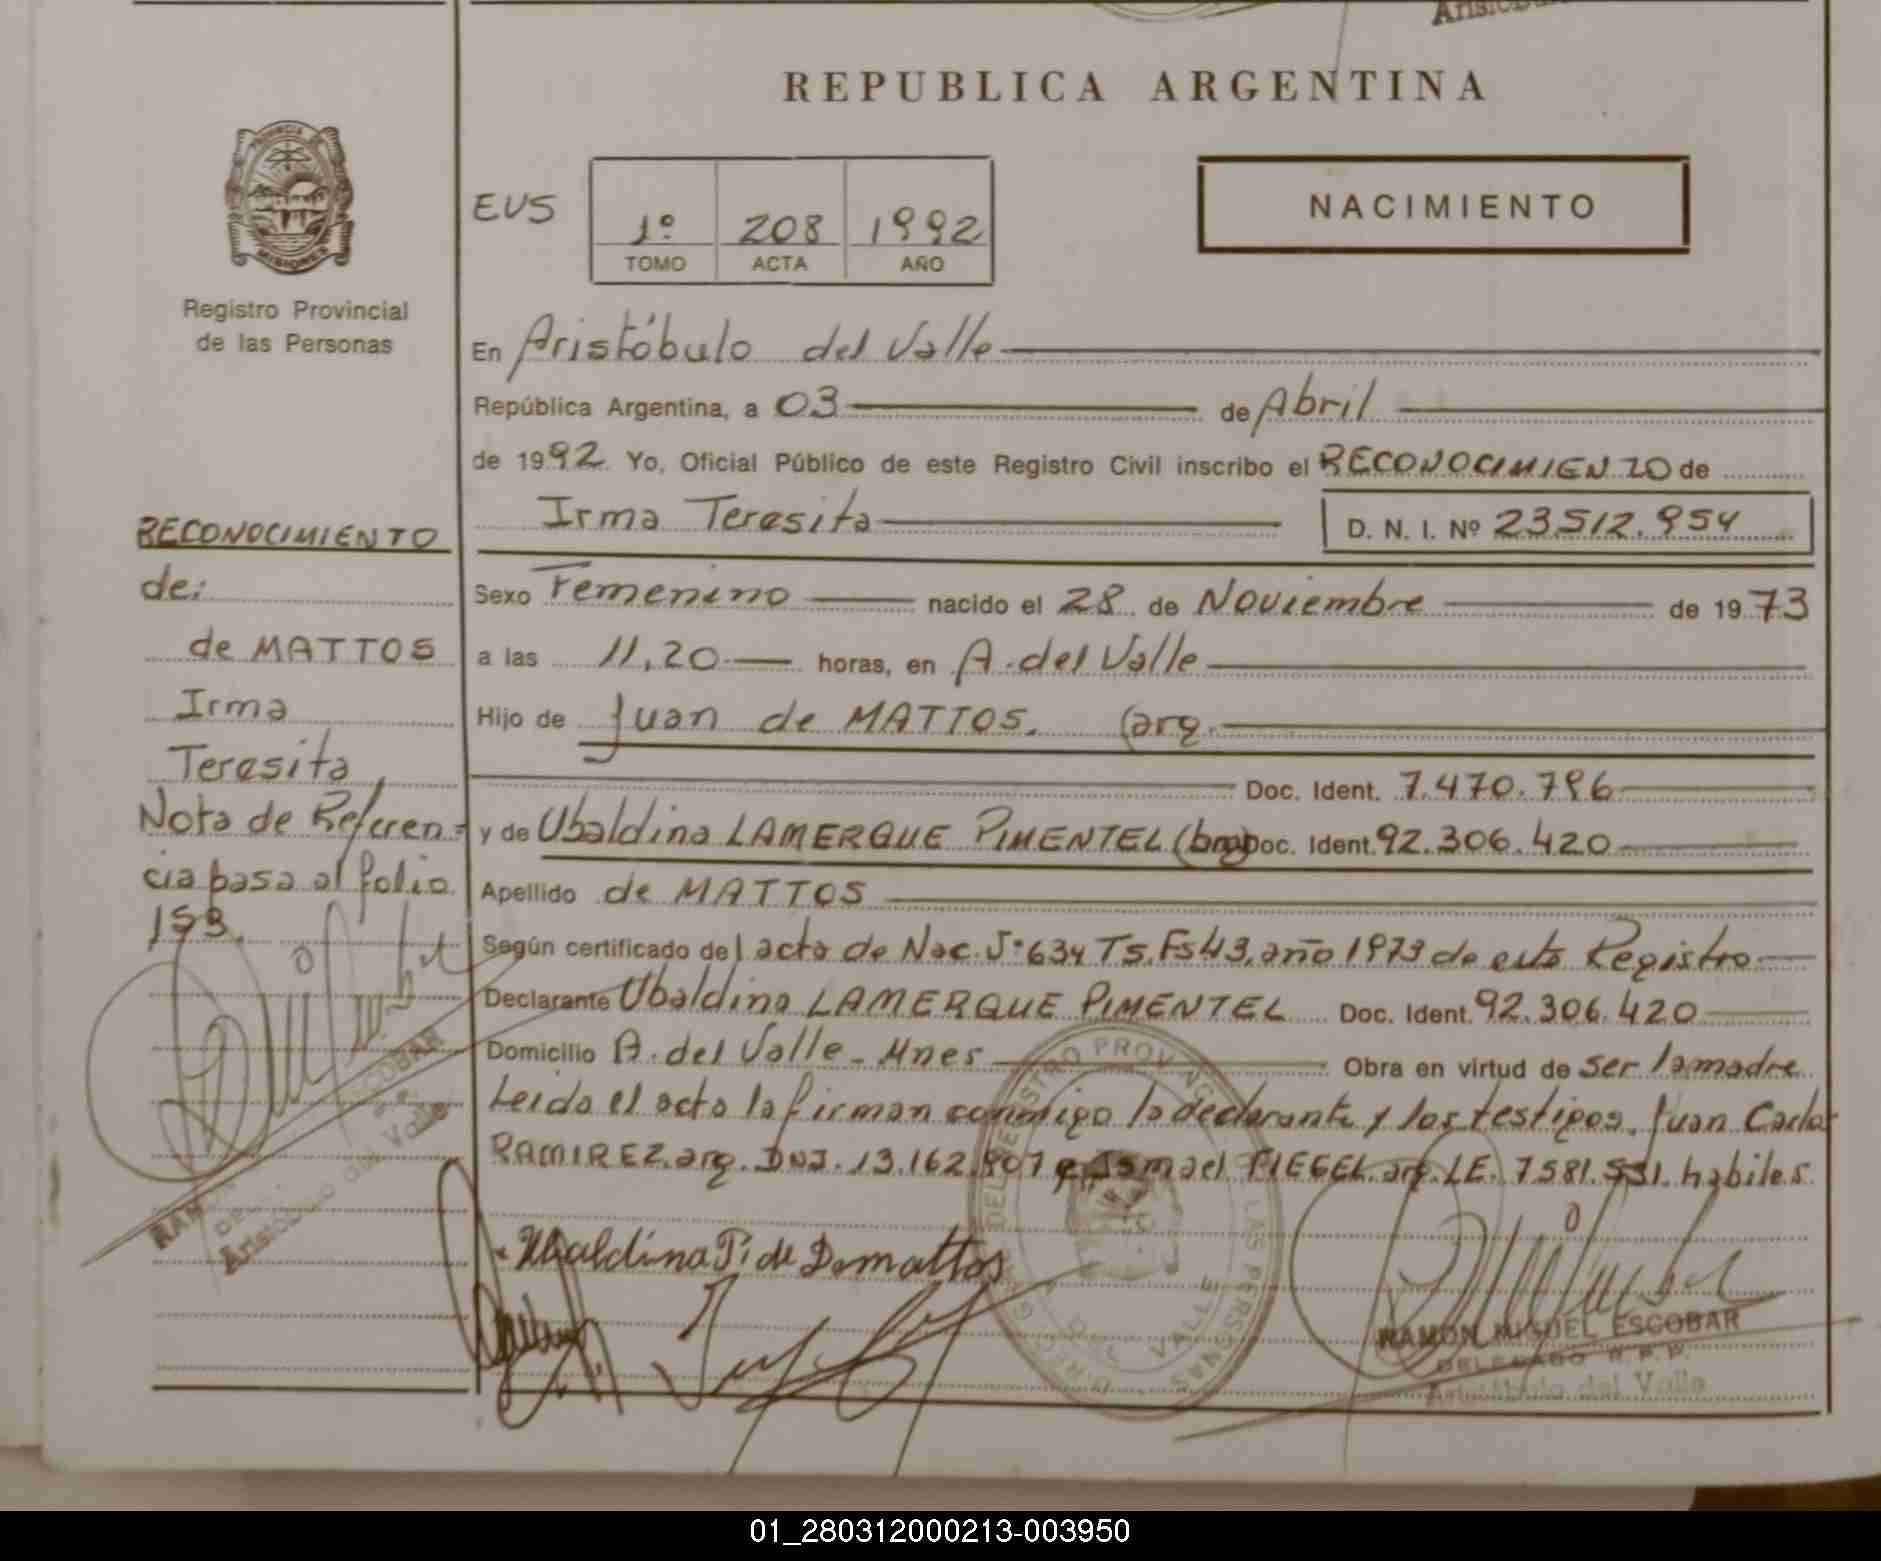 REPUBLICA ARGENTINA
PROVINCIA
MISIONES
Registro Provincial
de las Personas
EVS
1º 208 1992
TOMO ACTA AÑO
NACIMIENTO
En Aristóbulo del Valle
República Argentina, a 03 de Abril
de 1992 Yo, Oficial Público de este Registro Civil inscribo el RECONOCIMIENTO de
Irma Teresita D. N. I. Nº 23.512.954
Sexo Femenino nacido el 28 de Noviembre de 1973
a las 11,20 horas, en A. del Valle
Hijo de Juan de MATTOS. (arg.
Doc. Ident. 7.470.796
y de Ubaldina LAMERQUE PIMENTEL (bra) Doc. Ident. 92.306.420
Apellido de MATTOS
Según certificado del acta de Nac. Nº 634 T5. Fs 43. año 1973 de este Registro
Declarante Ubaldina LAMERQUE PIMENTEL Doc. Ident. 92.306.420
Domicilio A. del Valle - Mnes Obra en virtud de ser la madre
Leida el acta la firman conmigo la declarante y los testigos, Juan Carlos
RAMIREZ. arg. DNI. 13.162.907 e Ismael FIEGEL. arg. LE. 7581.551. habiles.
Ubaldina P. de Demattos
RAMON MIGUEL ESCOBAR
DELEGADO R.P.P.
Aristóbulo del Valle
RECONOCIMIENTO
de:
de MATTOS
Irma
Teresita,
Nota de Referen-
cia pasa al folio
193.
ESCOBAR
Aristóbulo del Valle
DEL VALLE
01_280312000213-003950